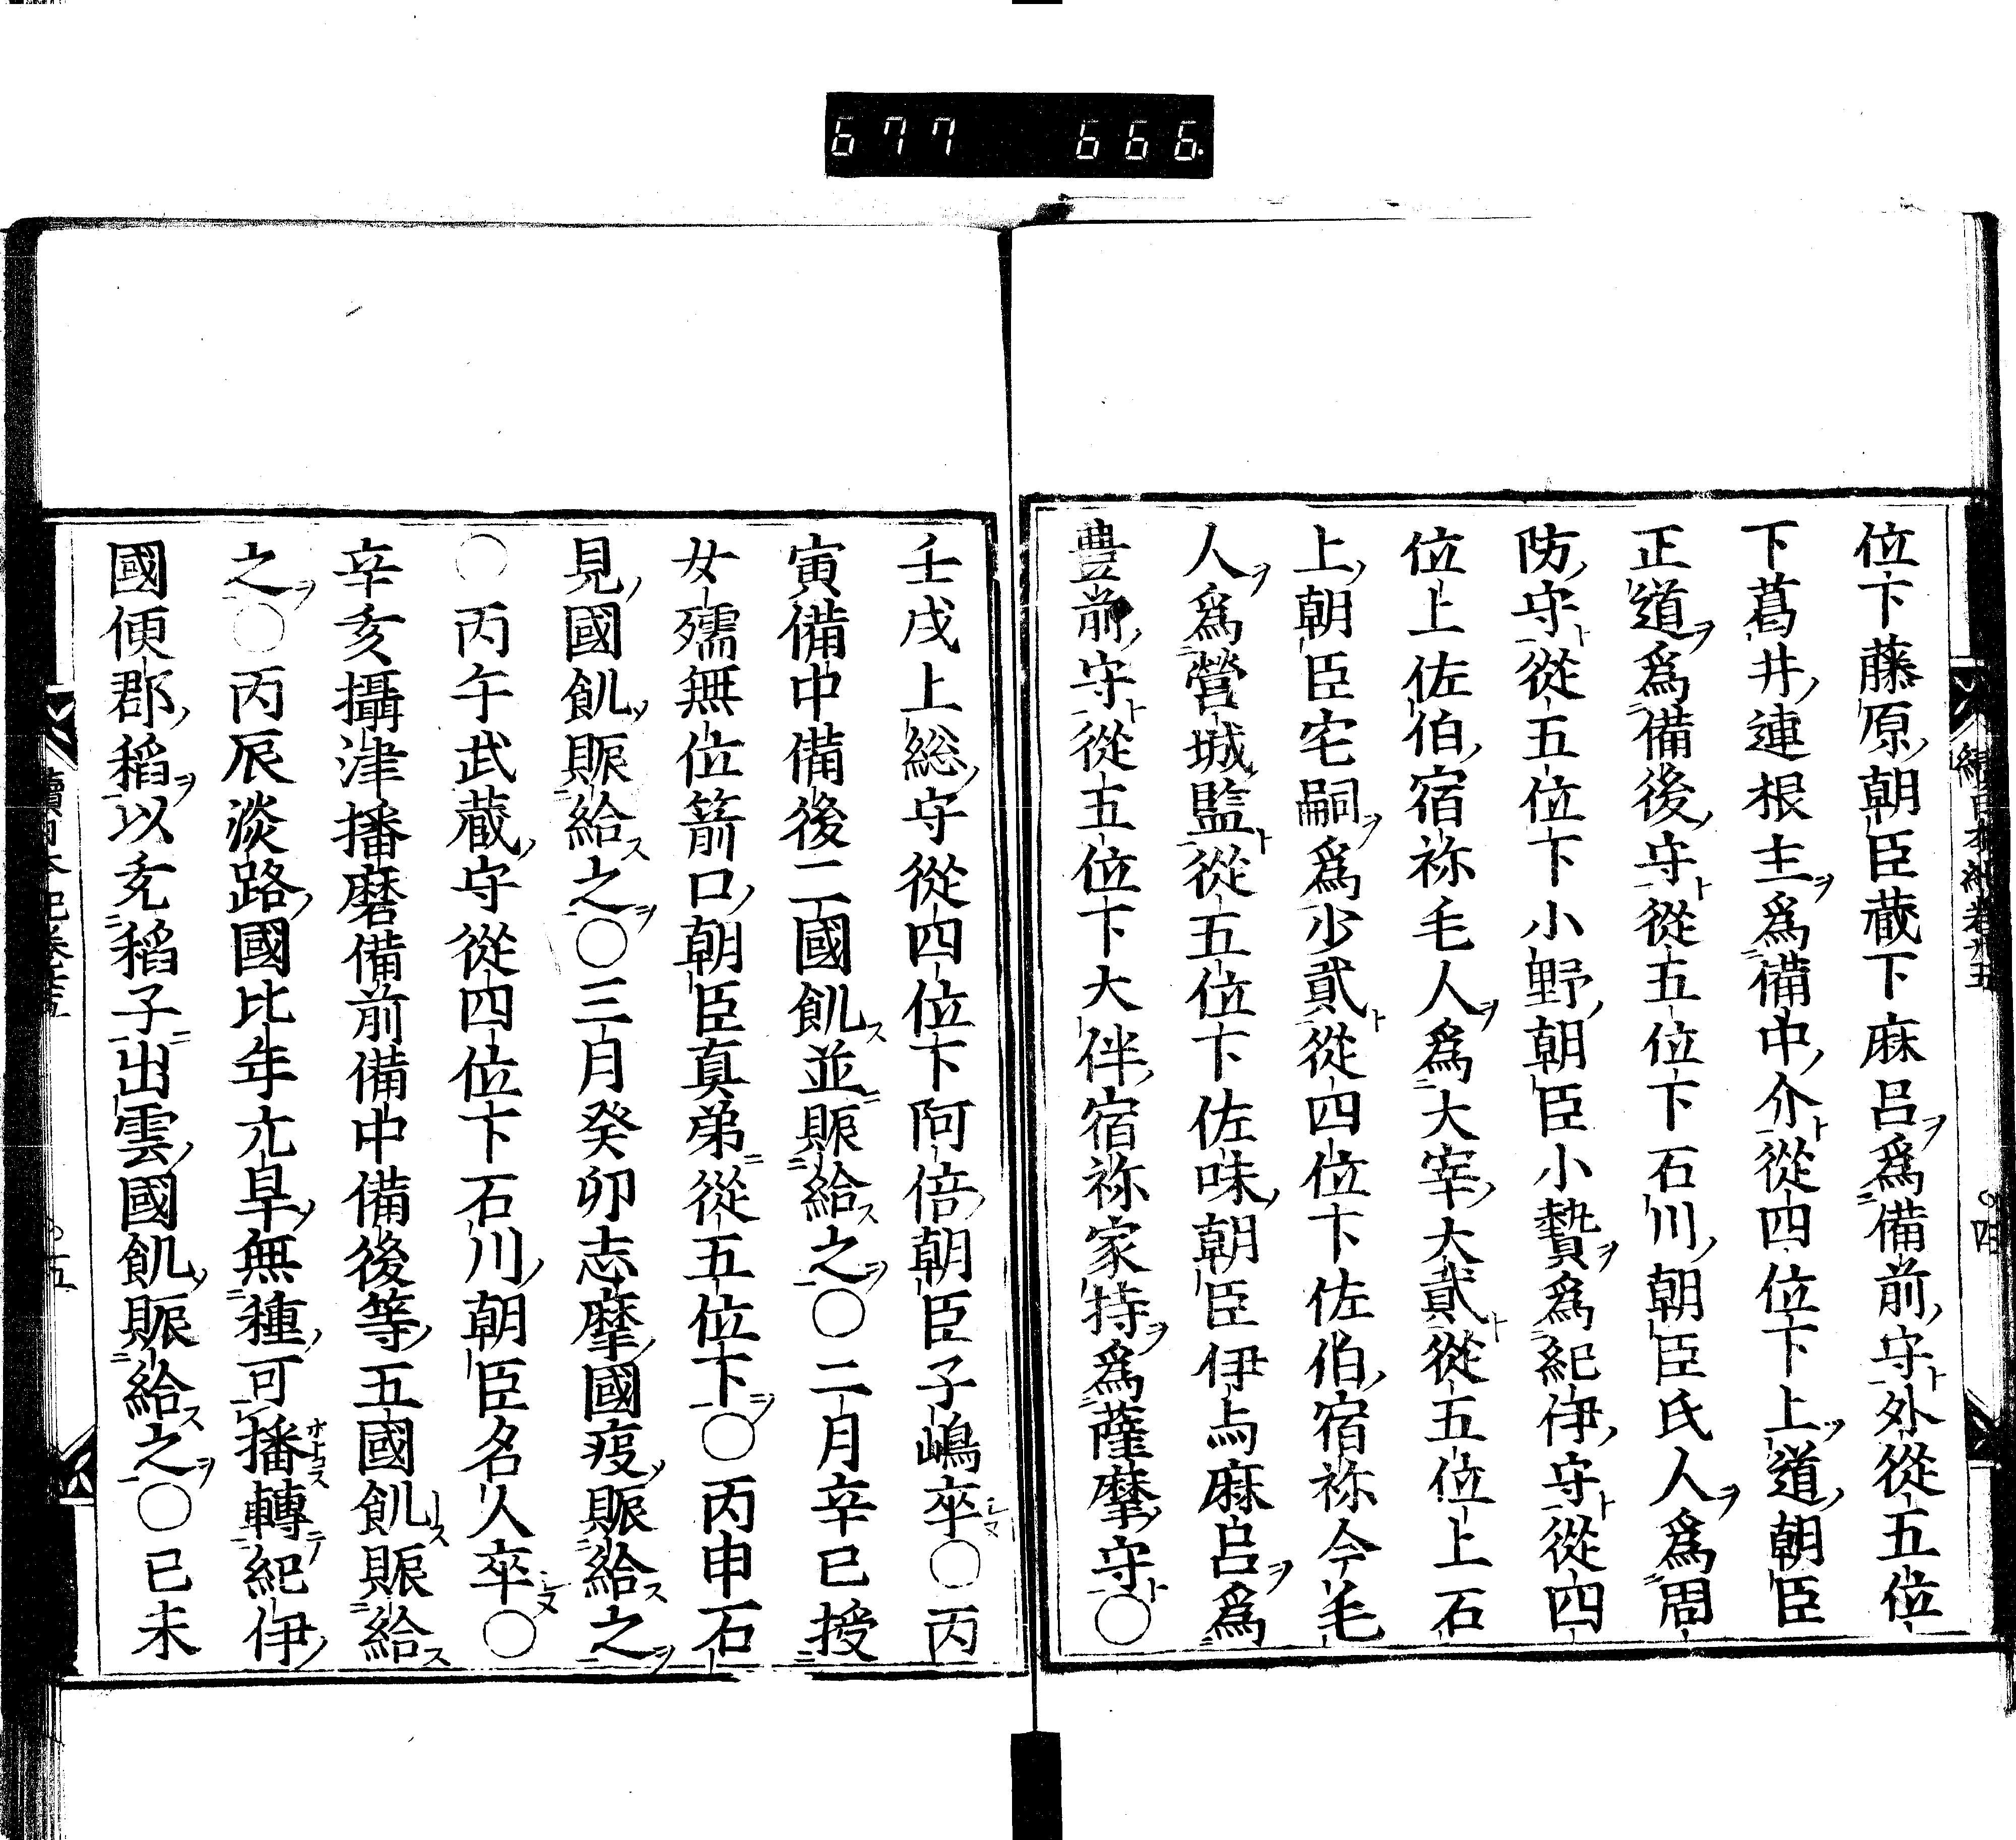 677 666
位下藤原朝臣蔵下麻呂爲備前守外從五位
下葛井連根主爲備中介從四位下上道朝臣
正道爲備後守從五位下石川朝臣氏人爲周
防守從五位下小野朝臣小贄爲紀伊守從四
位上佐伯宿祢毛人爲大宰大貳從五位上石
上朝臣宅嗣爲少貳從四位下佐伯宿祢今毛
人爲營城監從五位下佐味朝臣伊与麻呂爲
豊前守從五位下大伴宿祢家持爲薩摩守〇
壬戌上総守從四位下阿倍朝臣子嶋卒〇丙
寅備中備後二國飢並賑給之〇二月辛巳授
女孺無位箭口朝臣真弟從五位下〇丙申石
見國飢賑給之〇三月癸卯志摩國疫賑給之
〇丙午武蔵守從四位下石川朝臣名人卒〇
辛亥攝津播磨備前備中備後等五國飢賑給
之〇丙辰淡路國比年亢旱無種可播轉紀伊
國便郡稻以充稻子出雲國飢賑給之〇己未